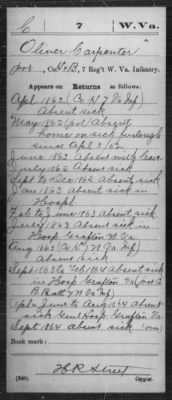 C | 7 | W. Va.
Oliver Carpenter
pvt, Co. H & B, 7 Reg't W. Va. Infantry.
Appears on Returns as follows:
Apl 1862 (Co H 7 Va Inf)
Absent sick
May 1862 (so) Absent
home on sick furlough
since Apl 2/62
June 1862 Absent
July 1862 Absent sick
Sept to Dec 1862 Absent sick
Jan 1863 Absent sick in
Hospt
Feb to June 1863 Absent sick
July 1863 absent sick in
Hosp Grafton W. Va
Aug 1863 (Co H 7 W Va Inf)
Absent sick
Sept 1863 to Feb 1864 absent sick
in Hosp Grafton Va
B Batt 7 W Va Inf
June to Aug 1864 absent
sick Genl Hosp Grafton Va
Sept 1864 absent sick
Book mark:
(546)
Copyist.